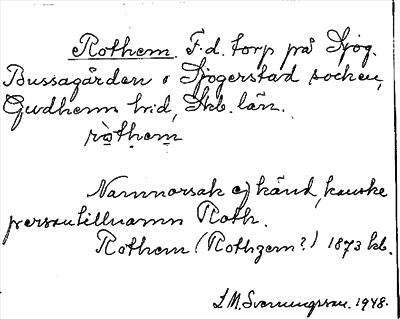 Rothem. F.d. torp på Sjög.
Bussagården i Sjogerstad socken,
Gudhems hrd, Skb. län.
ròthem
Namnorsak ej känd, kanske
persontillnamn Roth.
Rothem (Rothgem?) 1873 kb.
L M. Svenungsson. 1948.